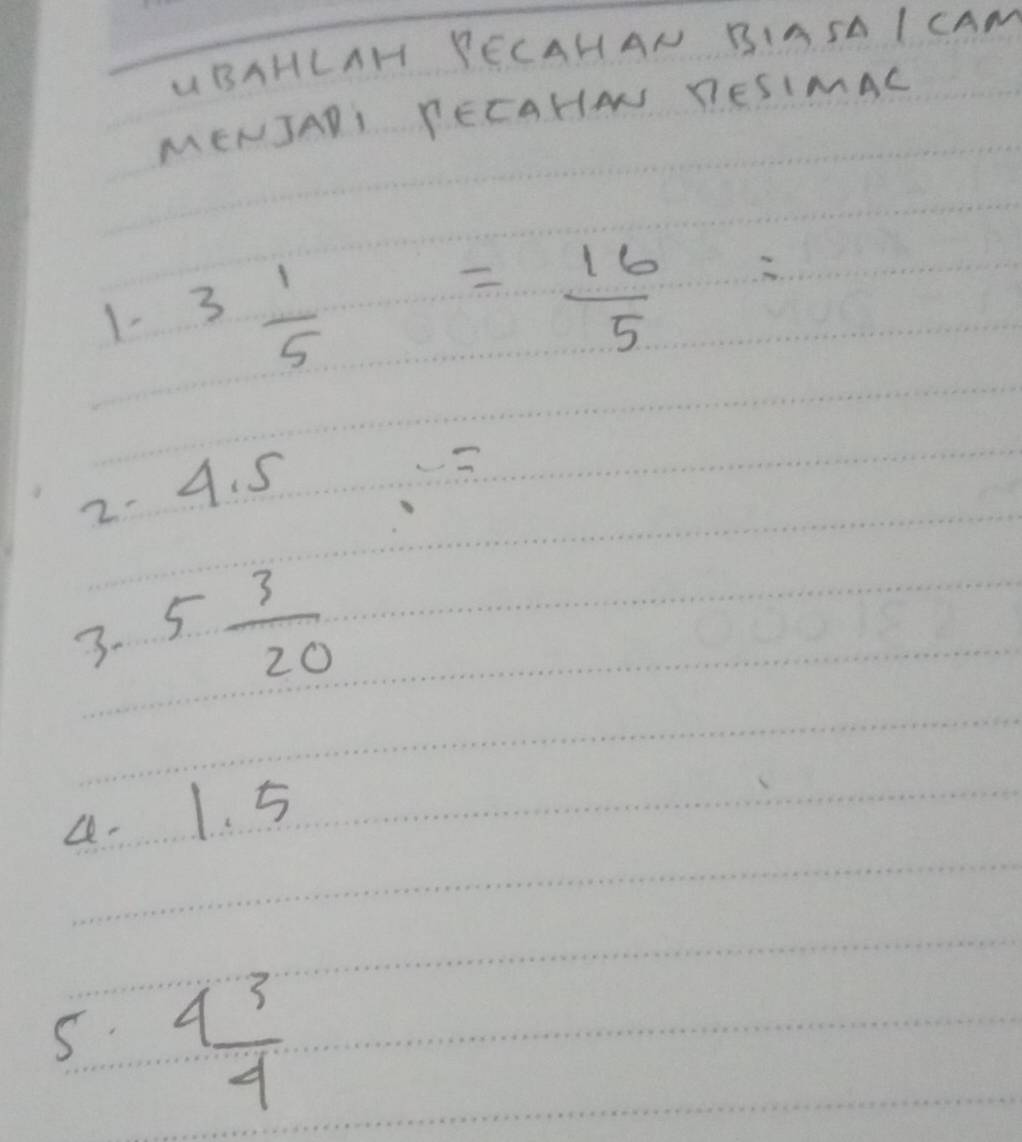 UBAHLAH PECAHAN BIASA / CAM
MENJADI PECAHAN DESIMAL
1. 3 1/5 = 16/5 =
2. 4.5 =
3. 5 3/20
4. 1.5
5. 4 3/4